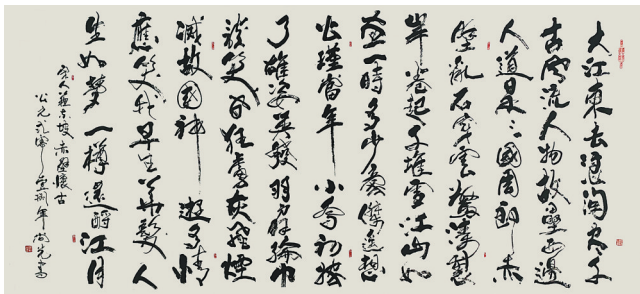 大江東去浪淘盡千
古風流人物故壘西邊
人道是三國周郎赤
壁亂石穿雲驚濤裂
岸卷起千堆雪江山如
畫一時多少豪傑遙想
公瑾當年小喬初嫁
了雄姿英發羽扇綸巾
談笑間狂虜灰飛煙
滅故國神遊多情
應笑我早生華髮人
生如夢一樽還酹江月
宋人蘇東坡赤壁懷古
公元年